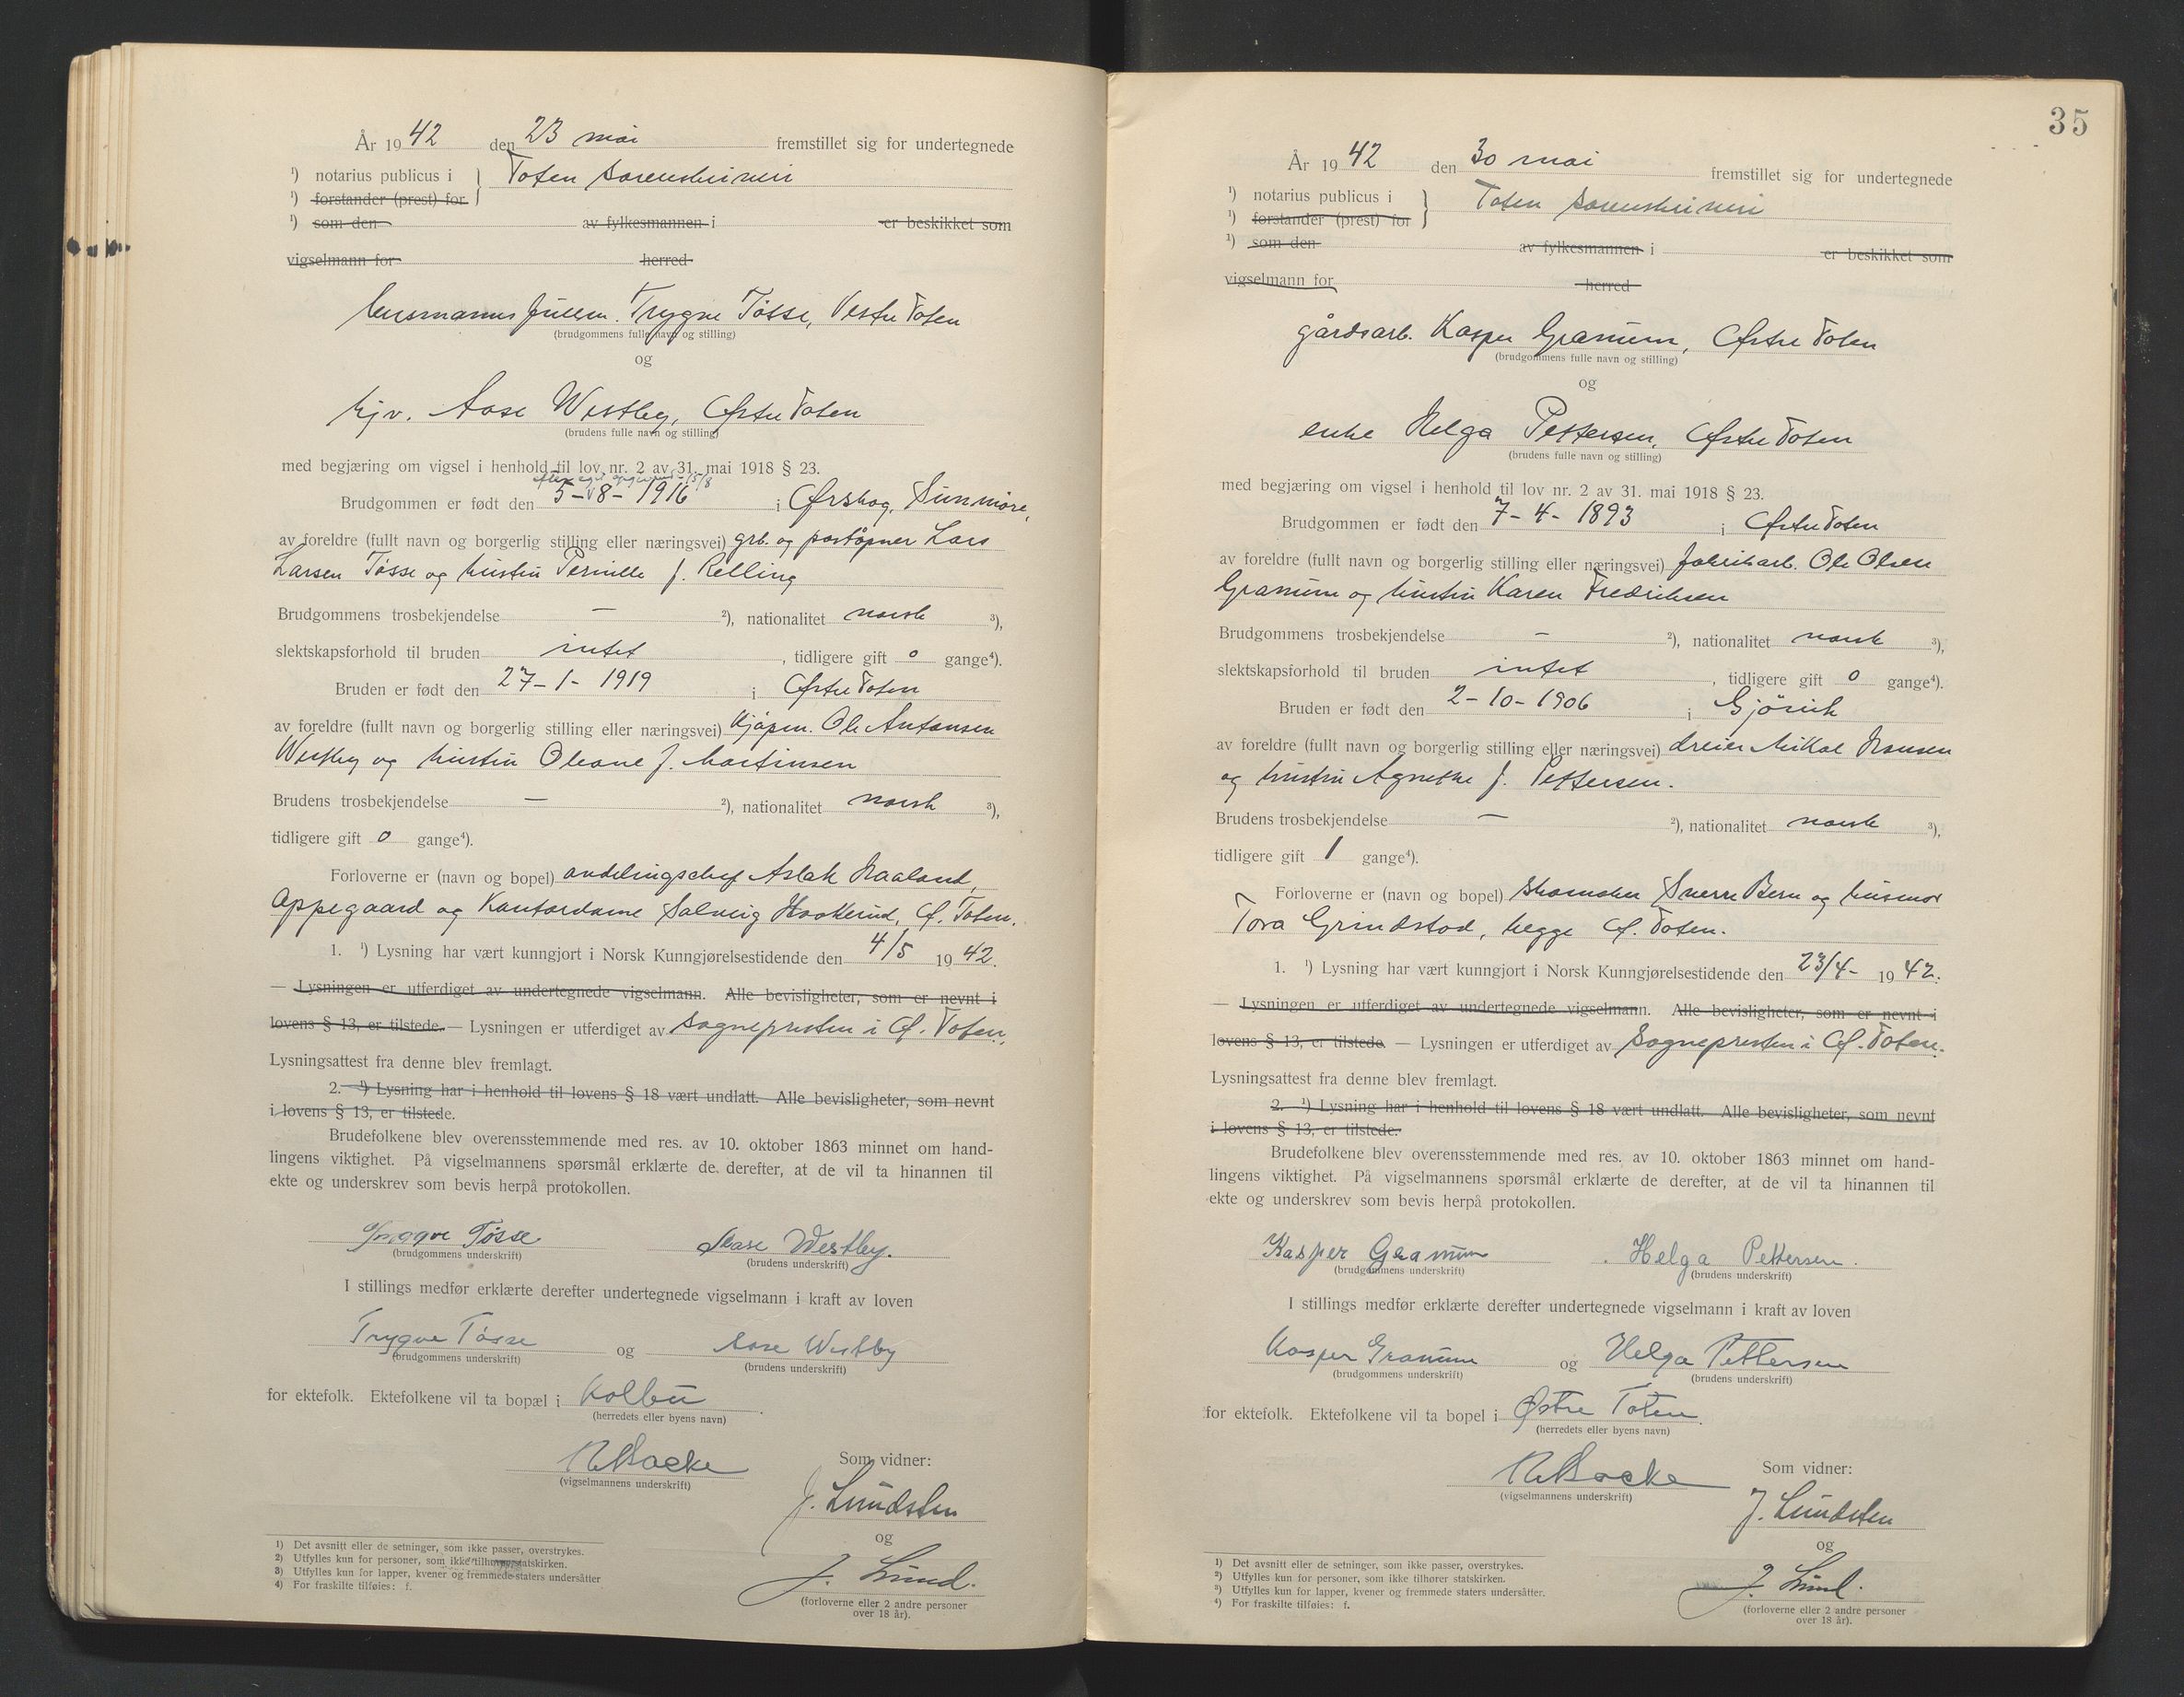 År 1942 den 23 mai fremstillet sig for undertegnede
¹) notarius publicus i } Toten sorenskriveri
¹) forstander (prest) for
¹) som den av fylkesmannen i er beskikket som
vigselmann for herred
lensmannsfullm. Trygve Tösse, Vestre Toten
(brudgommens fulle navn og stilling)
og
hjv. Aase Westby, Østre Toten
(brudens fulle navn og stilling)
med begjæring om vigsel i henhold til lov nr. 2 av 31. mai 1918 § 23.
Brudgommen er født den 5-8-1916 i Ørskog, Sunnmöre,
av foreldre (fullt navn og borgerlig stilling eller næringsvei) grb. og poståpner Lars
Larsen Tösse og hustru Pernille f. Relling
Brudgommens trosbekjendelse — ²), nationalitet norsk ³),
slektskapsforhold til bruden intet, tidligere gift 0 gange⁴).
Bruden er født den 27-1-1919 i Østre Toten
av foreldre (fullt navn og borgerlig stilling eller næringsvei) kjöpm. Ole Antonsen
Westby og hustru Oleane f. Martinsen
Brudens trosbekjendelse — ²), nationalitet norsk ³),
tidligere gift 0 gange⁴).
Forloverne er (navn og bopel) avdelingschef Aslak Haaland,
Oppegaard og Kontordame Solveig Hookerud, Ø. Toten.
1. ¹) Lysning har vært kunngjort i Norsk Kunngjørelsestidende den 4/5 1942.
— Lysningen er utferdiget av undertegnede vigselmann. Alle bevisligheter, som er nevnt i
lovens § 13, er tilstede. — Lysningen er utferdiget av sognepresten i Ø. Toten.
Lysningsattest fra denne blev fremlagt.
2. ¹) Lysning har i henhold til lovens § 18 vært undlatt. Alle bevisligheter, som nevnt
i lovens § 13, er tilstede.
Brudefolkene blev overensstemmende med res. av 10. oktober 1863 minnet om hand-
lingens viktighet. På vigselmannens spørsmål erklærte de derefter, at de vil ta hinannen til
ekte og underskrev som bevis herpå protokollen.
Trygve Tösse Aase Westby.
(brudgommens underskrift) (brudens underskrift)
I stillings medfør erklærte derefter undertegnede vigselmann i kraft av loven
Trygve Tösse og Aase Westby
(brudgommens underskrift) (brudens underskrift)
for ektefolk. Ektefolkene vil ta bopæl i Kolbu
(herredets eller byens navn)
Som vidner:
(vigselmannens underskrift)
J. Lundsten
og
J. Lund.
(forloverne eller 2 andre personer
over 18 år).
1) Det avsnitt eller de setninger, som ikke passer, overstrykes.
2) Utfylles kun for personer, som ikke tilhører statskirken.
3) Utfylles kun for lapper, kvener og fremmede staters undersåtter
4) For fraskilte tilføies: f.
35
År 1942 den 30 mai fremstillet sig for undertegnede
¹) notarius publicus i } Toten sorenskriveri
¹) forstander (prest) for
¹) som den av fylkesmannen i er beskikket som
vigselmann for herred
gårdsarb. Kasper Granum, Østre Toten
(brudgommens fulle navn og stilling)
og
enke Helga Pettersen, Østre Toten
(brudens fulle navn og stilling)
med begjæring om vigsel i henhold til lov nr. 2 av 31. mai 1918 § 23.
Brudgommen er født den 7-4-1893 i Østre Toten
av foreldre (fullt navn og borgerlig stilling eller næringsvei) fabrikarb. Ole Olsen
Granum og hustru Karen Fredriksen
Brudgommens trosbekjendelse — ²), nationalitet norsk ³),
slektskapsforhold til bruden intet, tidligere gift 0 gange⁴).
Bruden er født den 2-10-1906 i Gjövik
av foreldre (fullt navn og borgerlig stilling eller næringsvei) dreier Mikal Hansen
og hustru Agnethe f. Pettersen.
Brudens trosbekjendelse — ²), nationalitet norsk ³),
tidligere gift 1 gange⁴).
Forloverne er (navn og bopel) skomaker Sverre Bern og husmor
Tora Grindstad, begge Ø. Toten.
1. ¹) Lysning har vært kunngjort i Norsk Kunngjørelsestidende den 23/4- 1942.
— Lysningen er utferdiget av undertegnede vigselmann. Alle bevisligheter, som er nevnt i
lovens § 13, er tilstede — Lysningen er utferdiget av Sognepresten i Ø. Toten.
Lysningsattest fra denne blev fremlagt.
2. ¹) Lysning har i henhold til lovens § 18 vært undlatt. Alle bevisligheter, som nevnt
i lovens § 13, er tilstede.
Brudefolkene blev overensstemmende med res. av 10. oktober 1863 minnet om hand-
lingens viktighet. På vigselmannens spørsmål erklærte de derefter, at de vil ta hinannen til
ekte og underskrev som bevis herpå protokollen.
Kasper Granum Helga Pettersen.
(brudgommens underskrift) (brudens underskrift)
I stillings medfør erklærte derefter undertegnede vigselmann i kraft av loven
Kasper Granum og Helga Pettersen
(brudgommens underskrift) (brudens underskrift)
for ektefolk. Ektefolkene vil ta bopel i Østre Toten.
(herredets eller byens navn)
Som vidner:
(vigselmannens underskrift)
J. Lundsten
og
J. Lund.
(forloverne eller 2 andre personer
over 18 år).
1) Det avsnitt eller de setninger, som ikke passer, overstrykes.
2) Utfylles kun for personer, som ikke tilhører statskirken.
3) Utfylles kun for lapper, kvener og fremmede staters undersåtter.
4) For fraskilte tilføies: f.